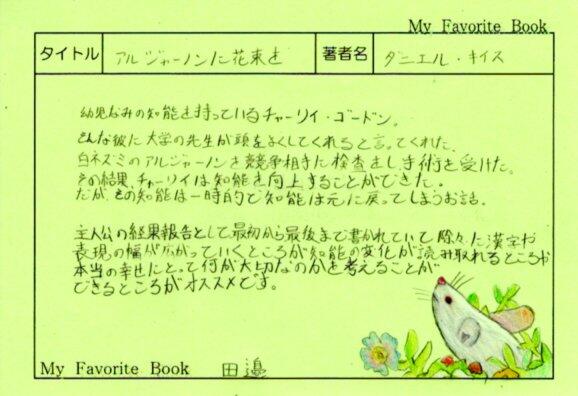 My Favorite Book
タイトル アルジャーノンに花束を 著者名 ダニエル・キイス
幼児なみの知能を持っているチャーリイ・ゴードン。
そんな彼に大学の先生が頭をよくしてくれると言ってくれた。
白ネズミのアルジャーノンを競争相手に検査をし手術を受けた。
その結果、チャーリイは知能を向上することができた。
だが、その知能は一時的で知能は元に戻ってしまうお話。
主人公の経果報告として最初から最後まで書かれていて除々に漢字や
表現の幅が広がっていくところが知能の変化が読み取れるところや
本当の幸せにとって何が大切なのかを考えることが
できるところがオススメです。
My Favorite Book 田邉